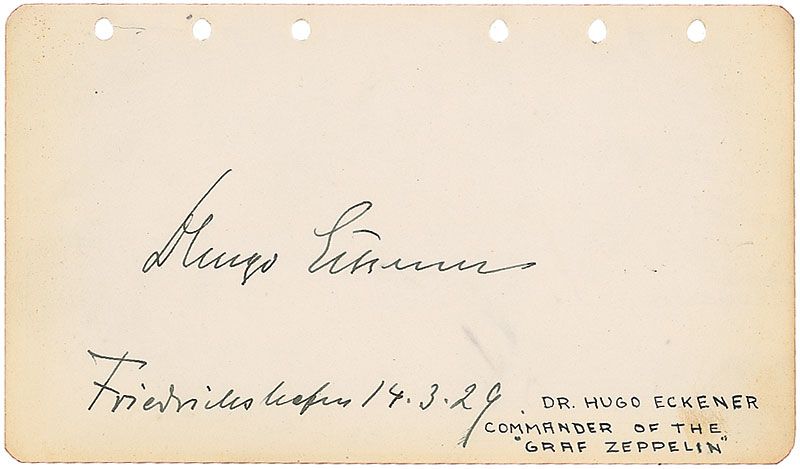 Dr Hugo Eckener
Friedrichshafen 14.3.29.
DR. HUGO ECKENER
COMMANDER OF THE
"GRAF ZEPPELIN"